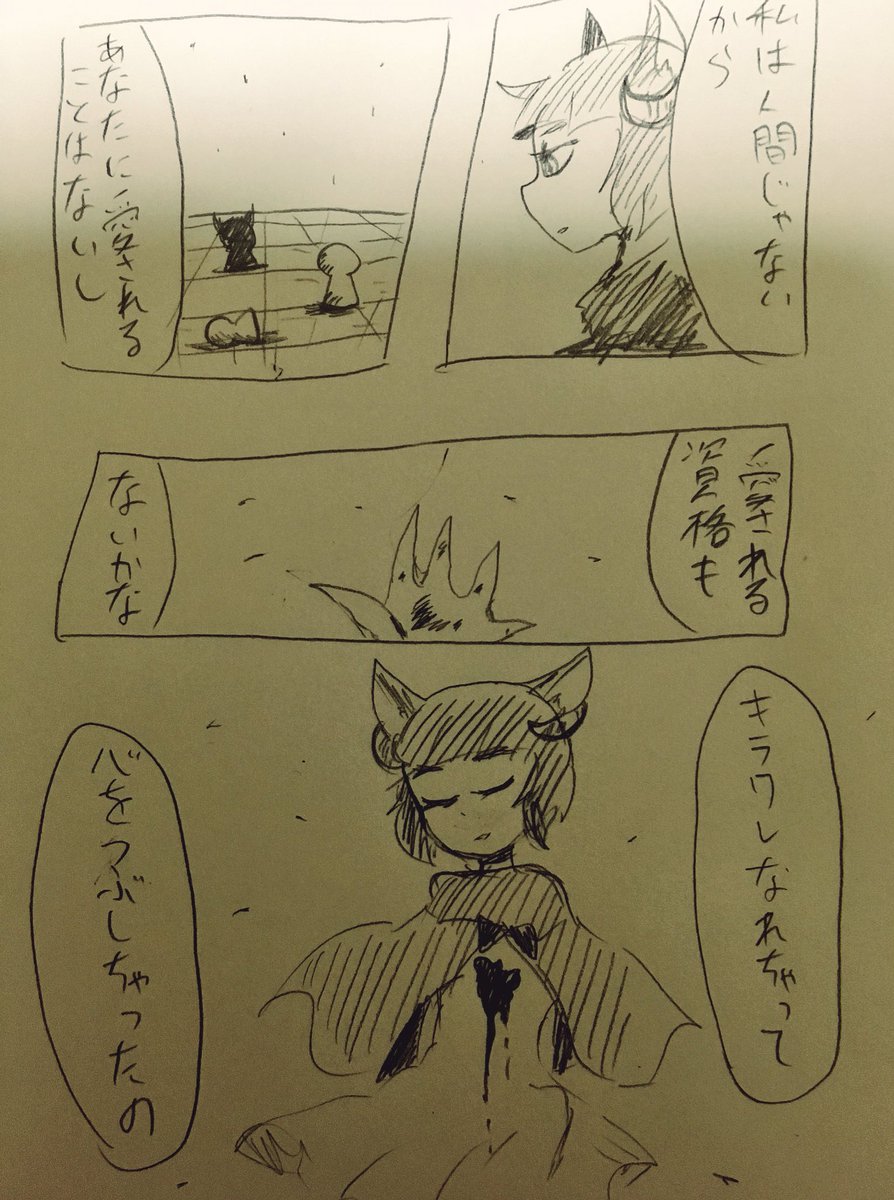 私は人間じゃない
から
あなたに愛される
ことはないし
愛される
資格も
ないかな
キラワレなれちゃって
心をつぶしちゃったの